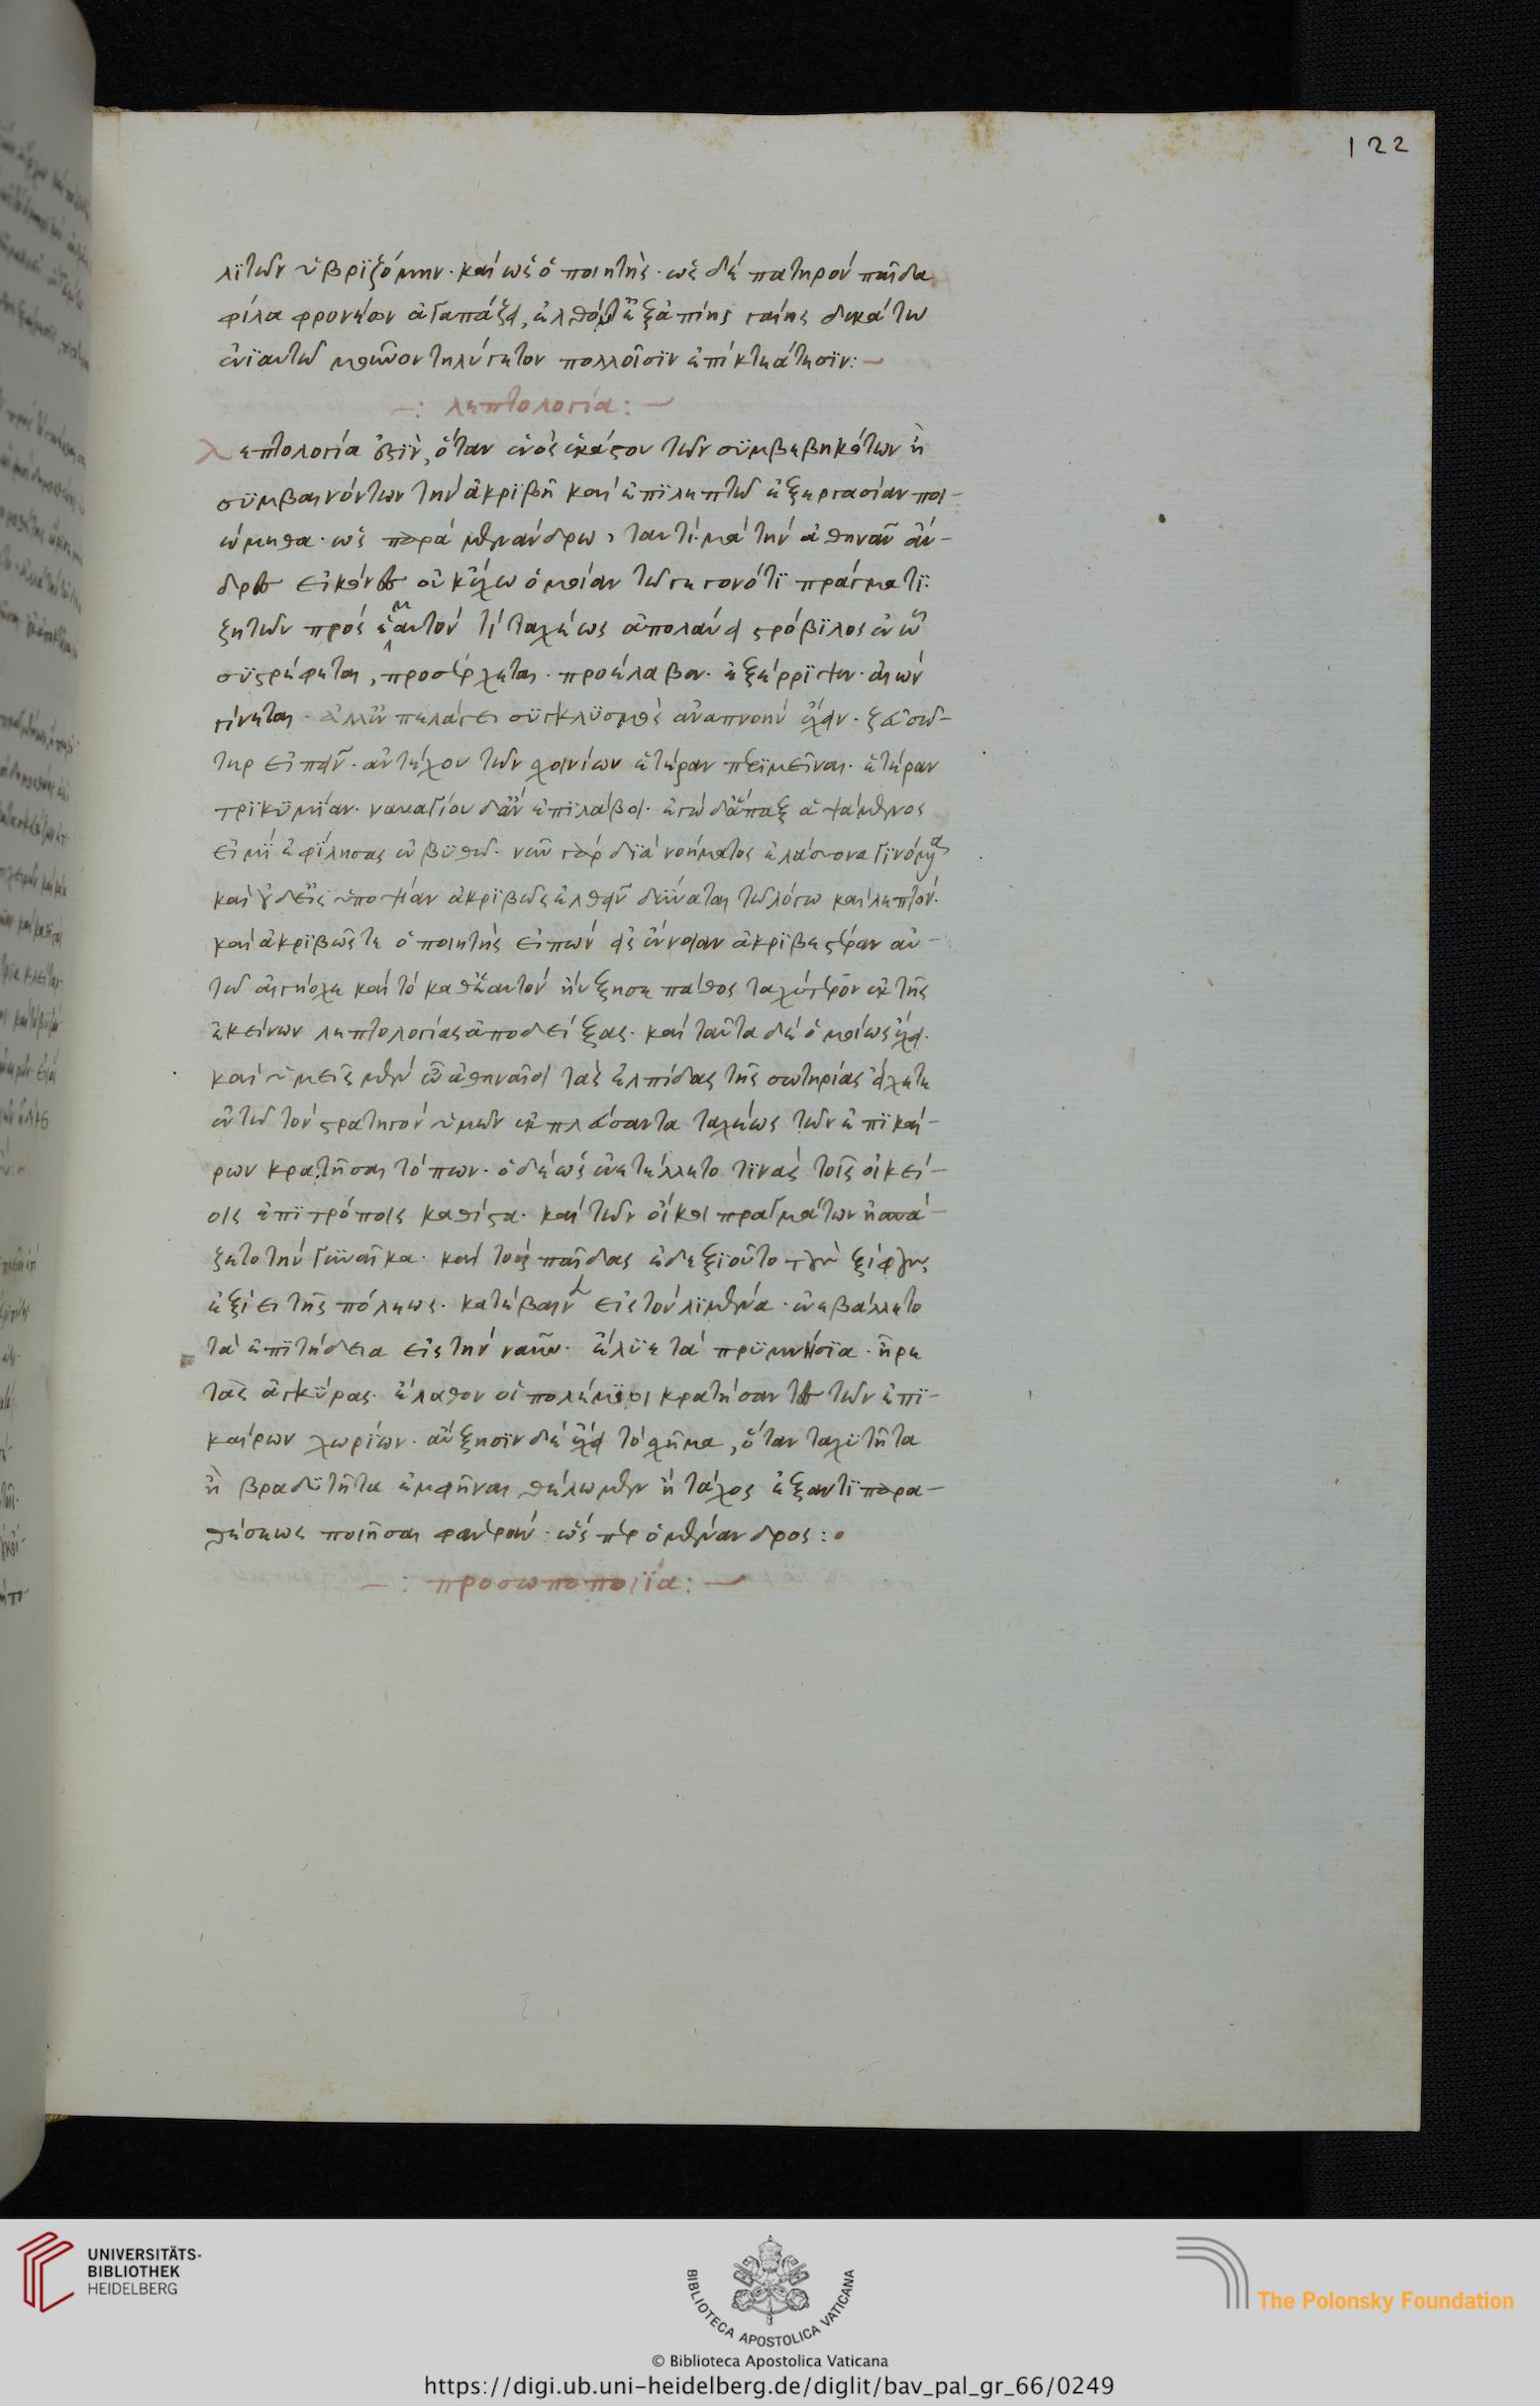 122
λϊτῶν ὑβρϊζόμην· καὶ ὡς ὁ ποιητής· ὡς δὲ πατὴρ ὃν παῖδα
φίλα φρονέων ἀγαπάζει, ἐλθόντ' ἐξ ἀπίης γαίης δεκάτω
ἐνϊαυτῶ μοῦνον τηλύγετον πολλοῖσϊν ἐπὶ κτεάτεσϊν:
λεπτολογία:
λεπτολογία ἐστϊν, ὅταν ἑνὸς ἑκάστου τῶν συμβεβηκότων ἢ
συμβαινόντων τὴν ἀκρϊβῆ καὶ ἐπϊλεπτῶ ἐξεργασίαν ποι-
ώμεθα· ὡς παρὰ μενάνδρω, ταυτὶ μὰ τὴν ἀθηνᾶν ἄν-
δρες εἰκόν οὐκ ἔχω ὁμοίαν τῶ γεγονότϊ πράγματϊ·
ζητῶν πρὸς ἐμαυτὸν τί ταχέως ἀπολαύει στρόβϊλος ἐν ᾧ
συστρέφεται, προσέρχεται· προέλαβεν· ἐξέρρϊψεν· αἰὼν
γίνεται· ἀλλ' ἐν πελάγει συγκλυσμὸς ἀναπνοὴν ἔχει· ζεῦ σῶ-
τερ εἰπεῖν· ἀντέχου τῶν σχοινίων ἑτέραν περϊμεῖναι· ἑτέραν
τρϊκυμίαν· ναυαγίου δ' ἂν ἐπϊλάβοι· ἐγὼ δ' ἅπαξ ἁψάμενος
εἰμὶ ἐφίλησας ἐν βυθῶ· νῦν γὰρ δϊὰ νοήματος ἐλάσσονα γϊνόμενα
καὶ οὐδεὶς ὑποψίαν ἀκρϊβῶς ἐλθεῖν δύναται τῶ λόγω καὶ λεπτόν·
καὶ ἀκρϊβῶς τε ὁ ποιητὴς εἰπὼν εἰς ἔννοιαν ἀκρϊβεστέραν αὐ-
τῶ ἀιγήοχε καὶ τὸ καθ' ἑαυτὸν ηὔξησε πάθος ταχύτερον ἐκ τῆς
ἐκείνων λεπτολογίας ἀποδείξας· καὶ ταῦτα δὲ ὁμοίως ἔχει·
καὶ ὑμεῖς μὲν ὦ ἀθηναῖοι τὰς ἐλπίδας τῆς σωτηρίας εἴχετε
ἐν τῶ τὸν στρατηγὸν ὑμῶν ἐκπλεύσαντα ταχέως τῶν ἐπϊκαί-
ρων κρατῆσαι τόπων· ὁ δὲ ὡς ἐνετέλλετο τϊνὰς τοῖς οἰκεί-
οις ἐπϊτρόποις καθίστα· καὶ τῶν οἴκοι πραγμάτων
τὴν γυναῖκα· καὶ τοὺς παῖδας ἐδεξϊοῦτο
ἐξίει τῆς πόλεως· κατέβαινεν εἰς τὸν λϊμένα· ἐνεβάλλετο
τὰ ἐπϊτήδεια εἰς τὴν ναῦν· ἔλυε τὰ πρυμνήσϊα· ἦρε
τὰς ἀγκύρας· ἔλαθον οἱ πολέμϊοι κρατήσαντες τῶν ἐπϊ-
καίρων χωρίων· αὔξησϊν δὲ ἔχει τὸ σχῆμα, ὅταν ταχυτῆτα
ἢ βραδυτῆτα ἐμφῆναι θέλωμεν ἢ τάχος ἐξ αντϊπαρα-
θέσεως ποιῆσαι φανερόν· ὥσπερ ὁ μένανδρος:
προσωποποιϊα:
UNIVERSITÄTS-
BIBLIOTHEK
HEIDELBERG
BIBLIOTECA APOSTOLICA VATICANA
The Polonsky Foundation
© Biblioteca Apostolica Vaticana
https://digi.ub.uni-heidelberg.de/diglit/bav_pal_gr_66/0249